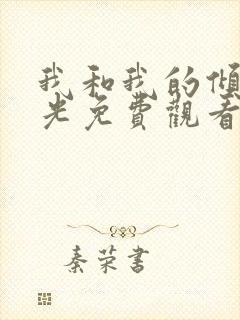 我和我的傾
光免費觀看
秦荣書